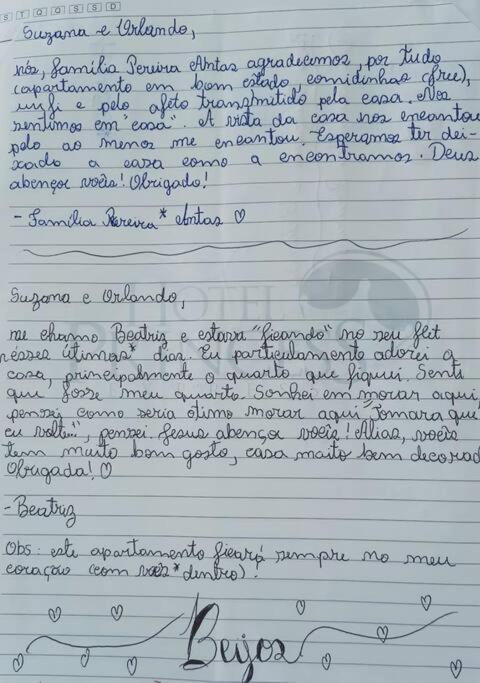 S T Q Q S S D
Suzana e Orlando,
nós, família Pereira Antas agradecemos, por tudo
(apartamento em bom estado, comidinhas (free),
wifi e pelo afeto transmitido pela casa. Nos
sentimos em "casa". A vista da casa nos encantou
pelo ao menos me encantou. Esperamos ter dei-
xado a casa como a encontramos. Deus
abençoe vocês! Obrigado!
- Família Pereira* Antas ♡
Suzana e Orlando,
me chamo Beatriz e estava "ficando" no seu flat
nesses útimos* dias. Eu particulamento adorei a
casa, principalmente o quarto que fiquei. Senti
que fosse meu quarto. Sonhei em morar aqui,
pensei como seria ótimo morar aqui "Tomara que
eu volte...", pensei. Jesus abençoe vocês! Alias, vocês
tem muito bom gosto, casa muito bem decorad
Obrigada! ♡
- Beatriz
Obs: este apartamento ficará sempre no meu
coração (com vocês* dentro).
Beijos